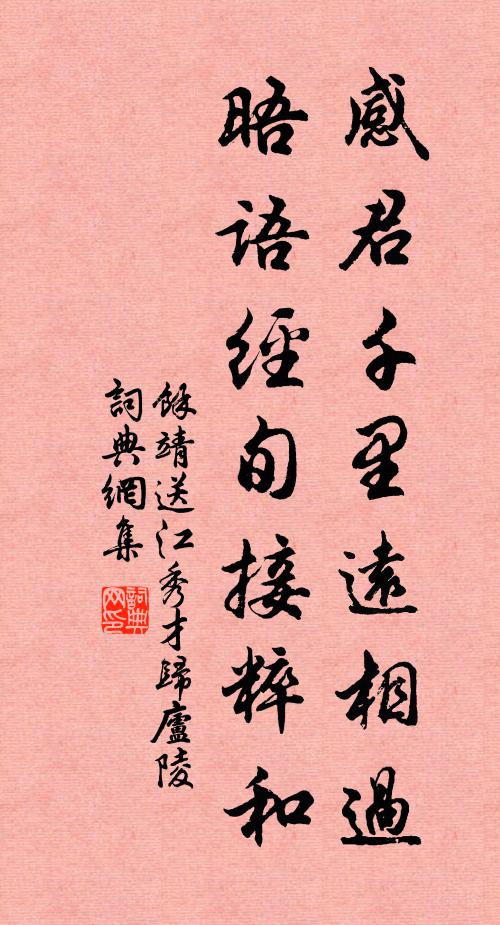 感君千里遠相過
晤語經旬接粹和
餘靖送江秀才歸廬陵
詞典網集
詞典网印